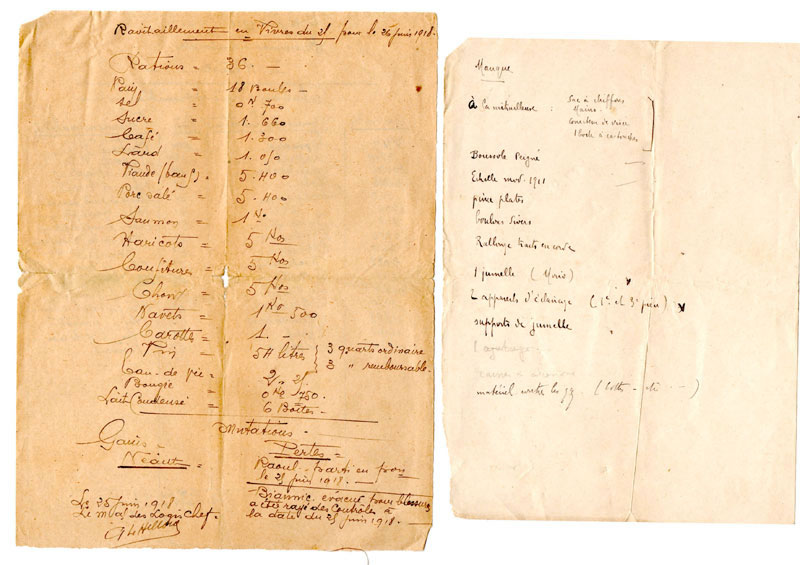 Ravitaillement en Vivres du 25 pour le 26 juin 1918.
Rations = 36. —
Pain = 18 Boules —
Sel = 0 K 700
Sucre = 1. 660
Café = 1. 300
Lard = 1. 050
Viande (bœuf). = 5. 400
Porc salé = 5. 400
Saumon = 1 Ko
Haricots = 5 Kos
Confitures = 5 Kos
Choux = 5 Kos
Navets = 1 Ko 500
Carottes = 1 —
Vin = 54 litres } 3 quarts ordinaire
3 " remboursable.
Eau-de-vie = 2, 25
Bougie = 0 Ko 750
Lait Condensé = 6 Boîtes —
Mutations.
Gains =
Néant =
Pertes =
Raoul - parti en
le 25 juin 1918. —
evacué pour blessures
a été rayé des Controles à
la date du 25 juin 1918. —
Le 25 juin 1918
Le des Logis Chef.
Manque
à la mitrailleuse : Sac à chiffons
Mains
Boussole Peigné
Echelle mod. 1911
pince plates
boulons divers
Rallonge en corde
1 jumelle (
2 appareils d'éclairage (1re et 3e pièce)
supports de jumelle
matériel contre les gaz (